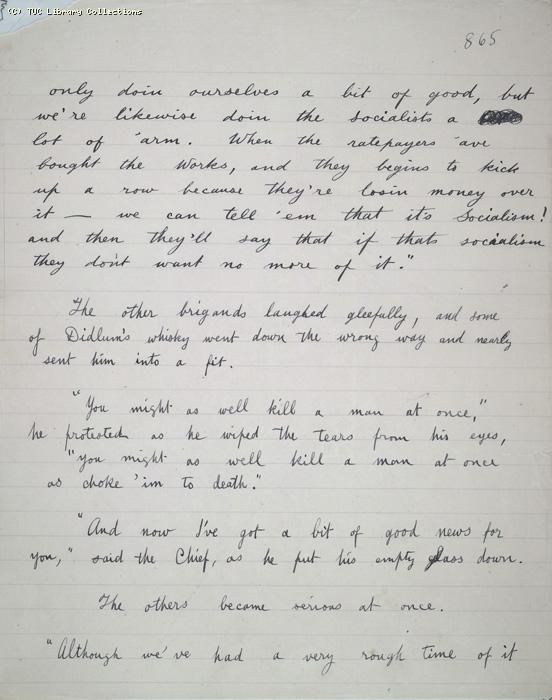 (C) TUC Library Collections
865
only doin ourselves a bit of good, but
we're likewise doin the socialists a
lot of 'arm. When the ratepayers 'ave
bought the Works, and they begins to kick
up a row because they're losin money over
it — we can tell 'em that it's Socialism!
and then they'll say that if thats socialism
they dont want no more of it."
The other brigands laughed gleefully, and some
of Didlum's whisky went down the wrong way and nearly
sent him into a fit.
"You might as well kill a man at once,"
he protested as he wiped the tears from his eyes,
"you might as well kill a man at once
as choke 'im to death."
"And now I've got a bit of good news for
you," said the Chief, as he put his empty glass down.
The others became serious at once.
"Although we've had a very rough time of it